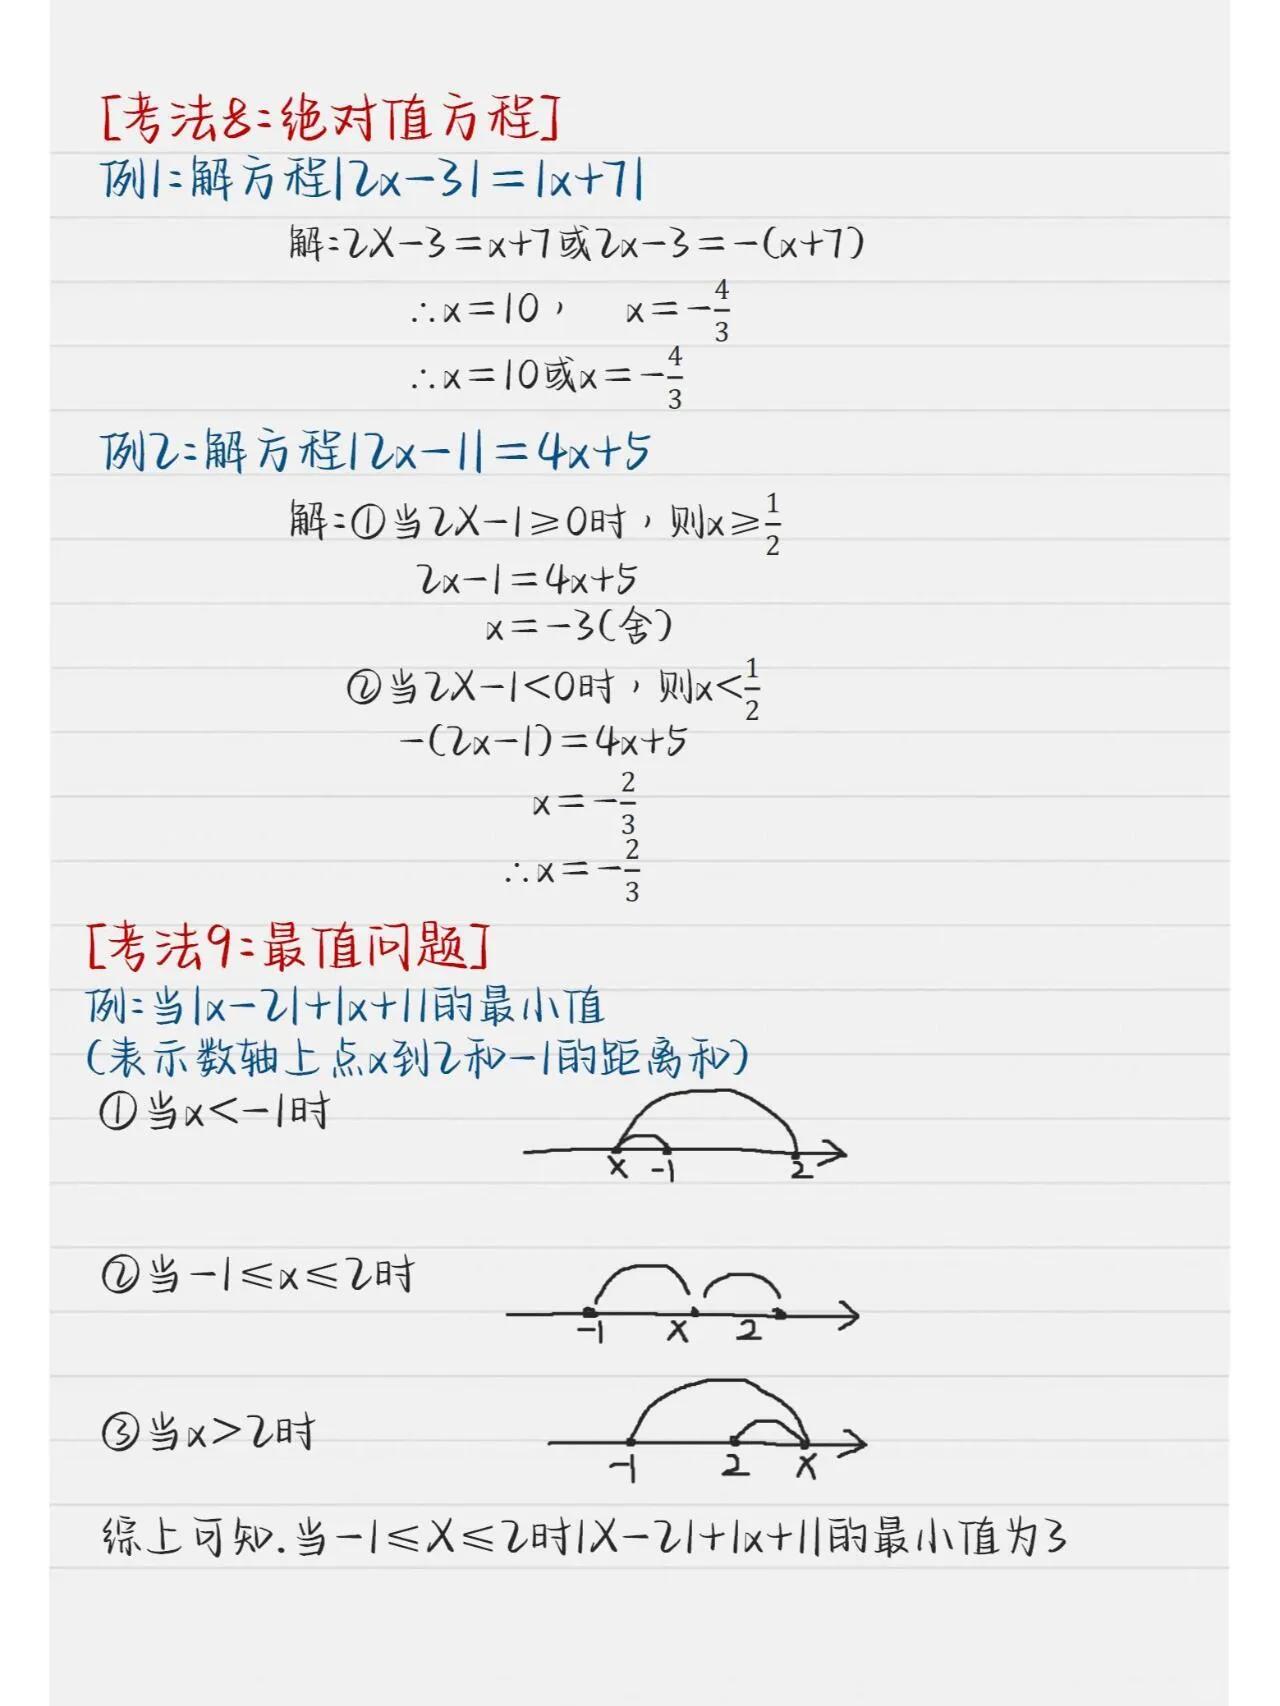 [考法8:绝对值方程]
例1:解方程|2x-3|=|x+7|
解:2X-3=x+7或2x-3=-(x+7)
∴x=10, x=-4/3
∴x=10或x=-4/3
例2:解方程|2x-1|=4x+5
解:①当2X-1≥0时,则x≥1/2
2x-1=4x+5
x=-3(舍)
②当2X-1<0时,则x<1/2
-(2x-1)=4x+5
x=-2/3
∴x=-2/3
[考法9:最值问题]
例:当|x-2|+|x+1|的最小值
(表示数轴上点x到2和-1的距离和)
①当x<-1时
x -1 2
②当-1≤x≤2时
-1 x 2
③当x>2时
-1 2 x
综上可知.当-1≤X≤2时|X-2|+|x+1|的最小值为3